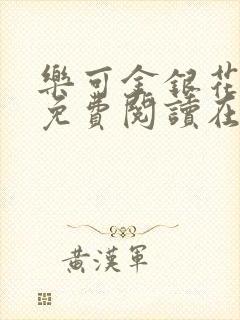 樂可金銀花
免費閱讀在
黃漢軍